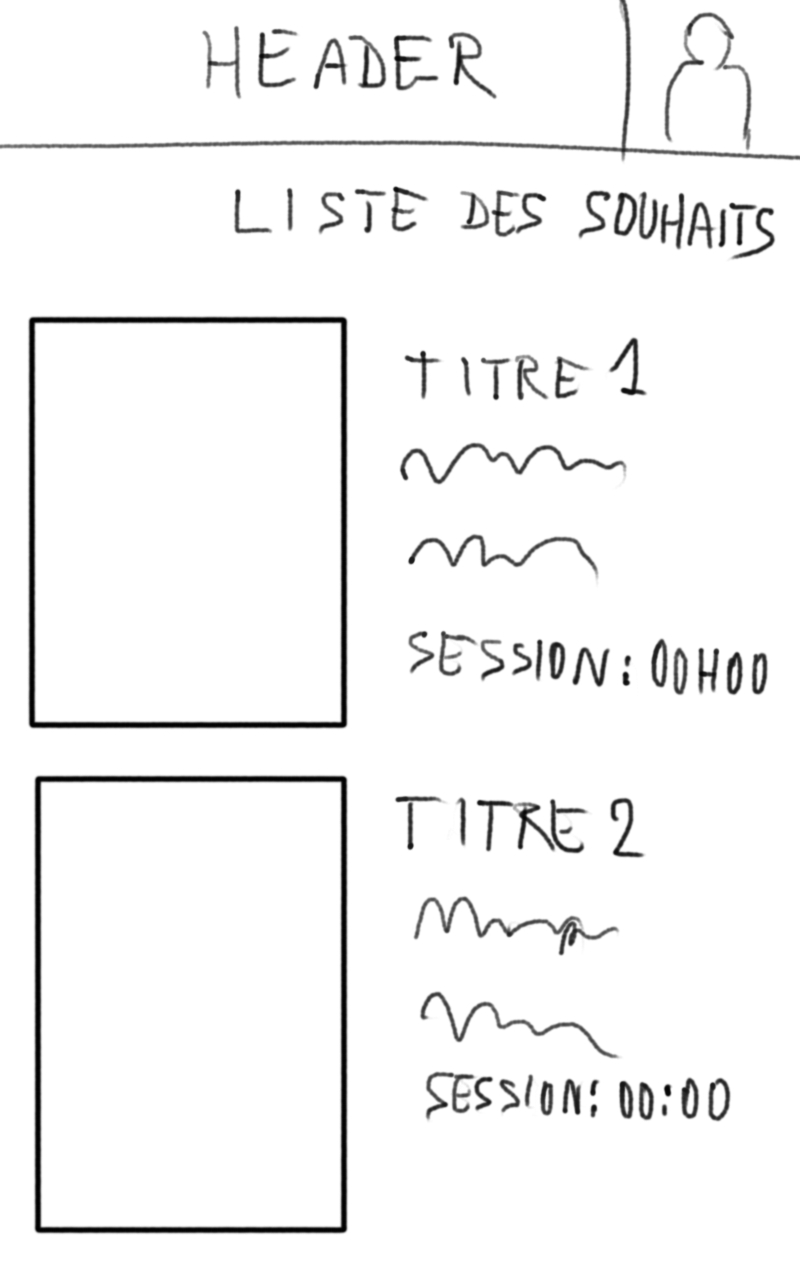 HEADER
LISTE DES SOUHAITS
TITRE 1
SESSION: 00H00
TITRE 2
SESSION: 00:00